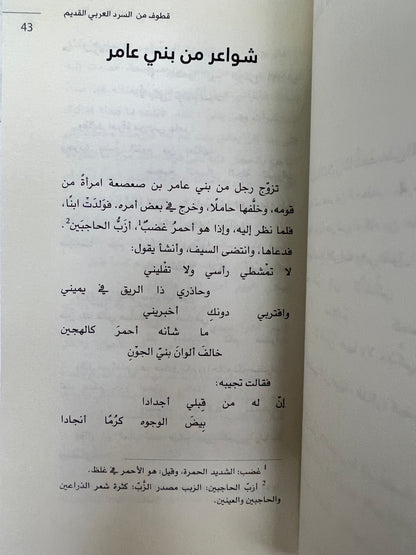 قطوف من السرد العربي القديم
43
شواعر من بني عامر
تزوّج رجل من بني عامر بن صعصعة امرأةً من
قومه، وخلّفها حاملًا، وخرج في بعض أمره. فولدَتْ ابنًا،
فلما نظر إليه، وإذا هو أحمرُ غضبٌ¹، أزَبُّ الحاجبَين².
فدعاها، وانتضى السيف، وأنشأ يقول:
لا تمْشطي رأسي ولا تفْليني
وحاذري ذا الريق في يميني
واقتربي دونكِ أخبريني
ما شأنه أحمرَ كالهجين
خالفَ ألوانَ بنيّ الجوّنِ
فقالت تجيبه:
إنّ له من قِبلي أجدادا
بِيضَ الوجوه كرُمًا أنجادا
¹ غضب: الشديد الحمرة، وقيل: هو الأحمر في غلظ.
² أزبّ الحاجبين: الزبب مصدر الزَّبّ: كثرة شعر الذراعين
والحاجبين والعينين.